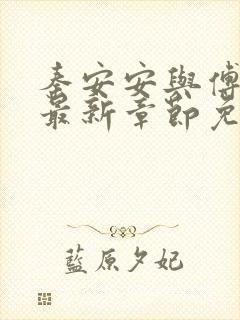 秦安安與傅
最新章節免
藍原夕妃